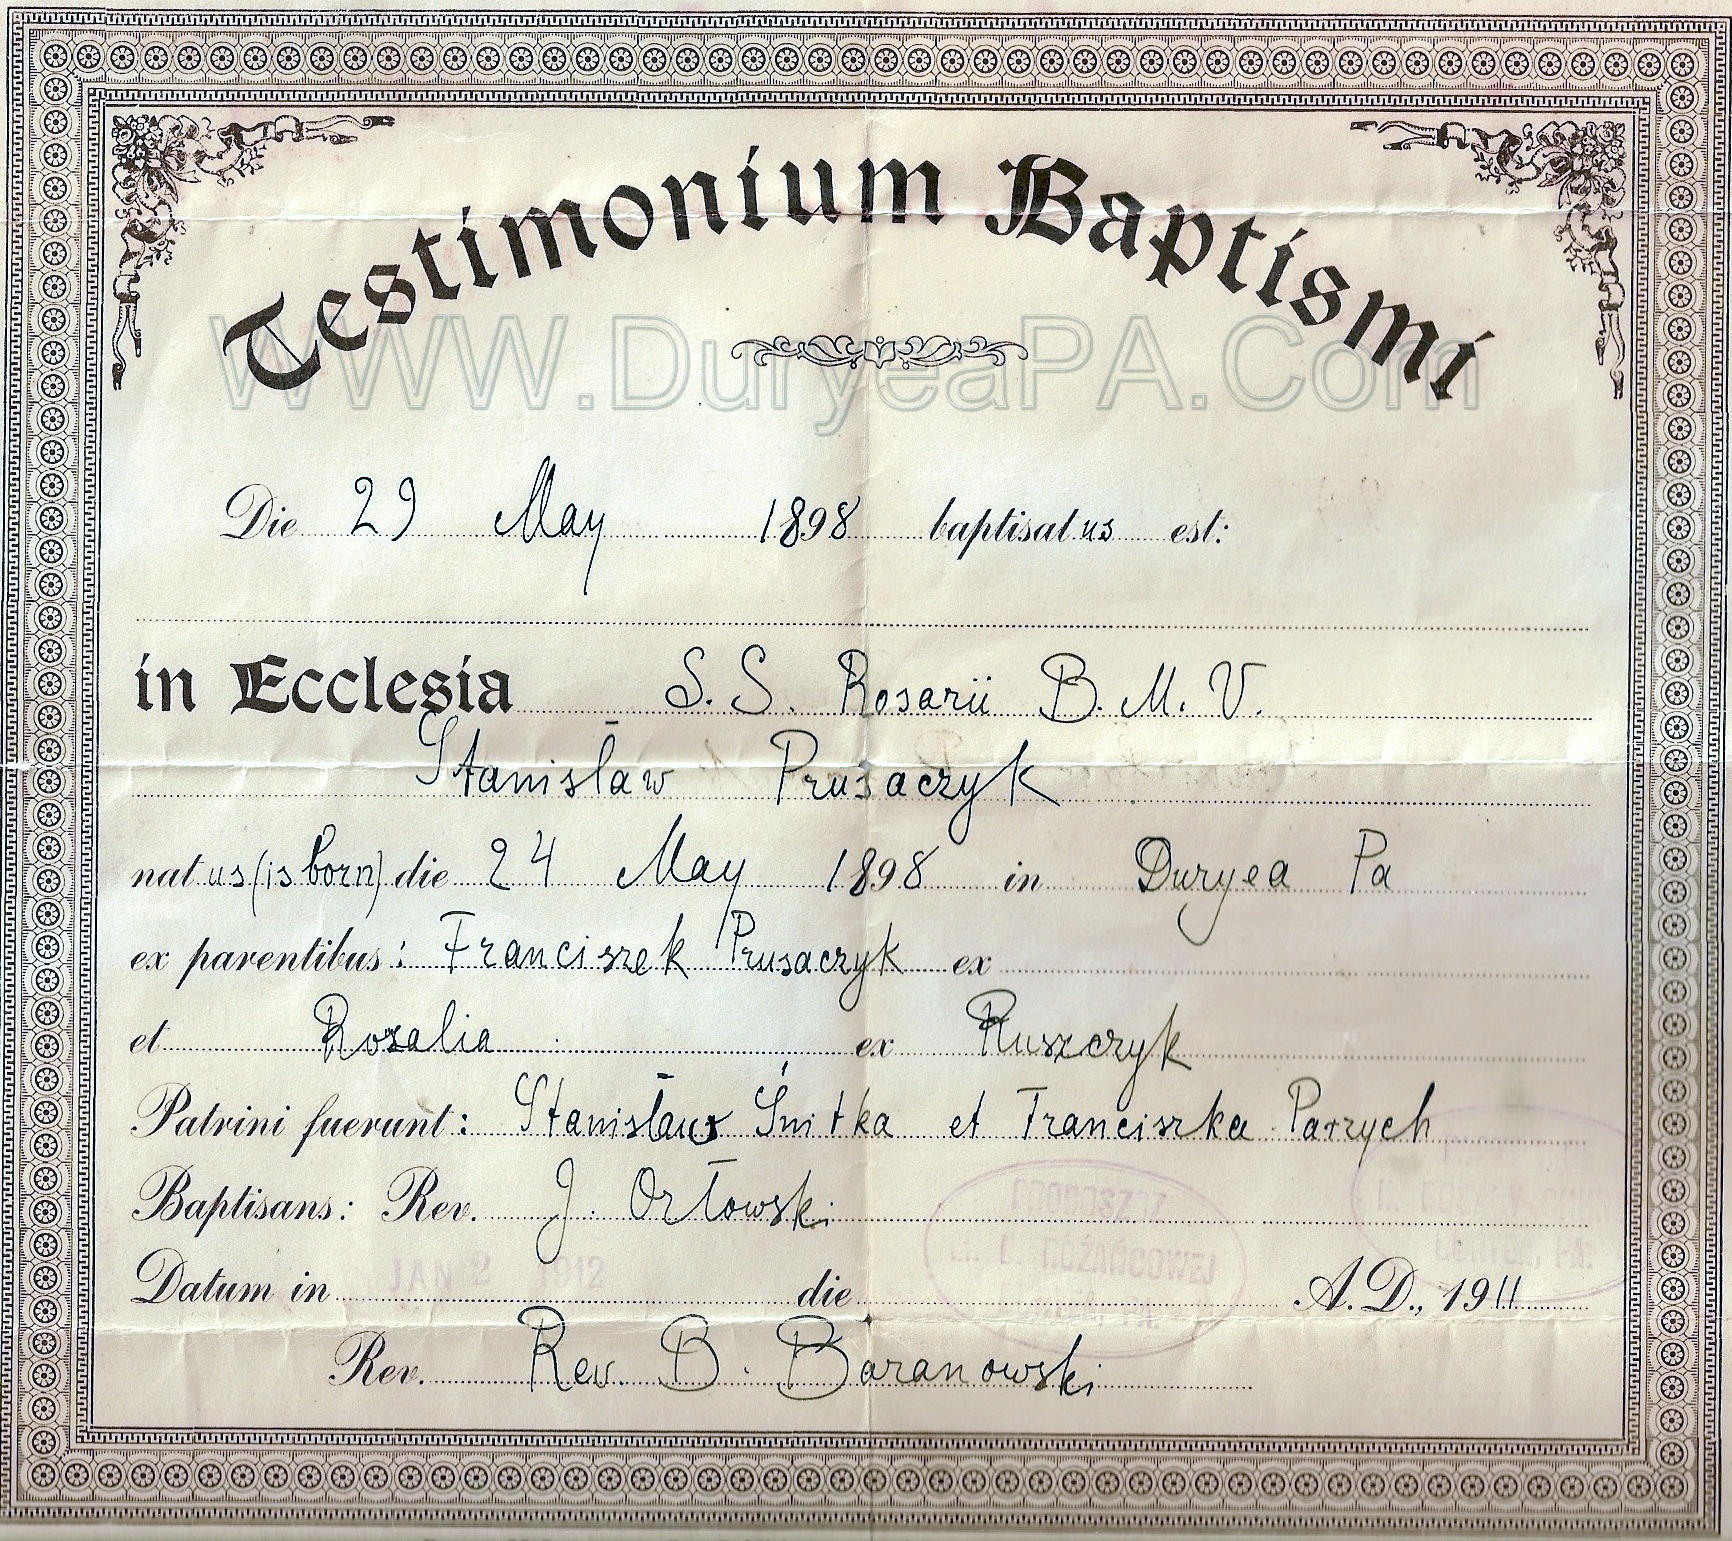 Testimonium Baptismi
WWW.DuryeaPA.Com
Die 29 May 1898 baptisatus est:
in Ecclesia S. S. Rosarii B. M. V.
Stanisław Prusaczyk
natus (is born) die 24 May 1898 in Duryea Pa
ex parentibus: Franciszek Prusaczyk ex
et Rozalia ex Ruszczyk
Patrini fuerunt: Stanisław Śnitka et Franciszka Parzych
Baptisans: Rev. J. Orłowski
RÓŻAŃCOWEJ
PA.
Datum in JAN 2 1912 die A. D., 1911
Rev. Rev. B. Baranowski